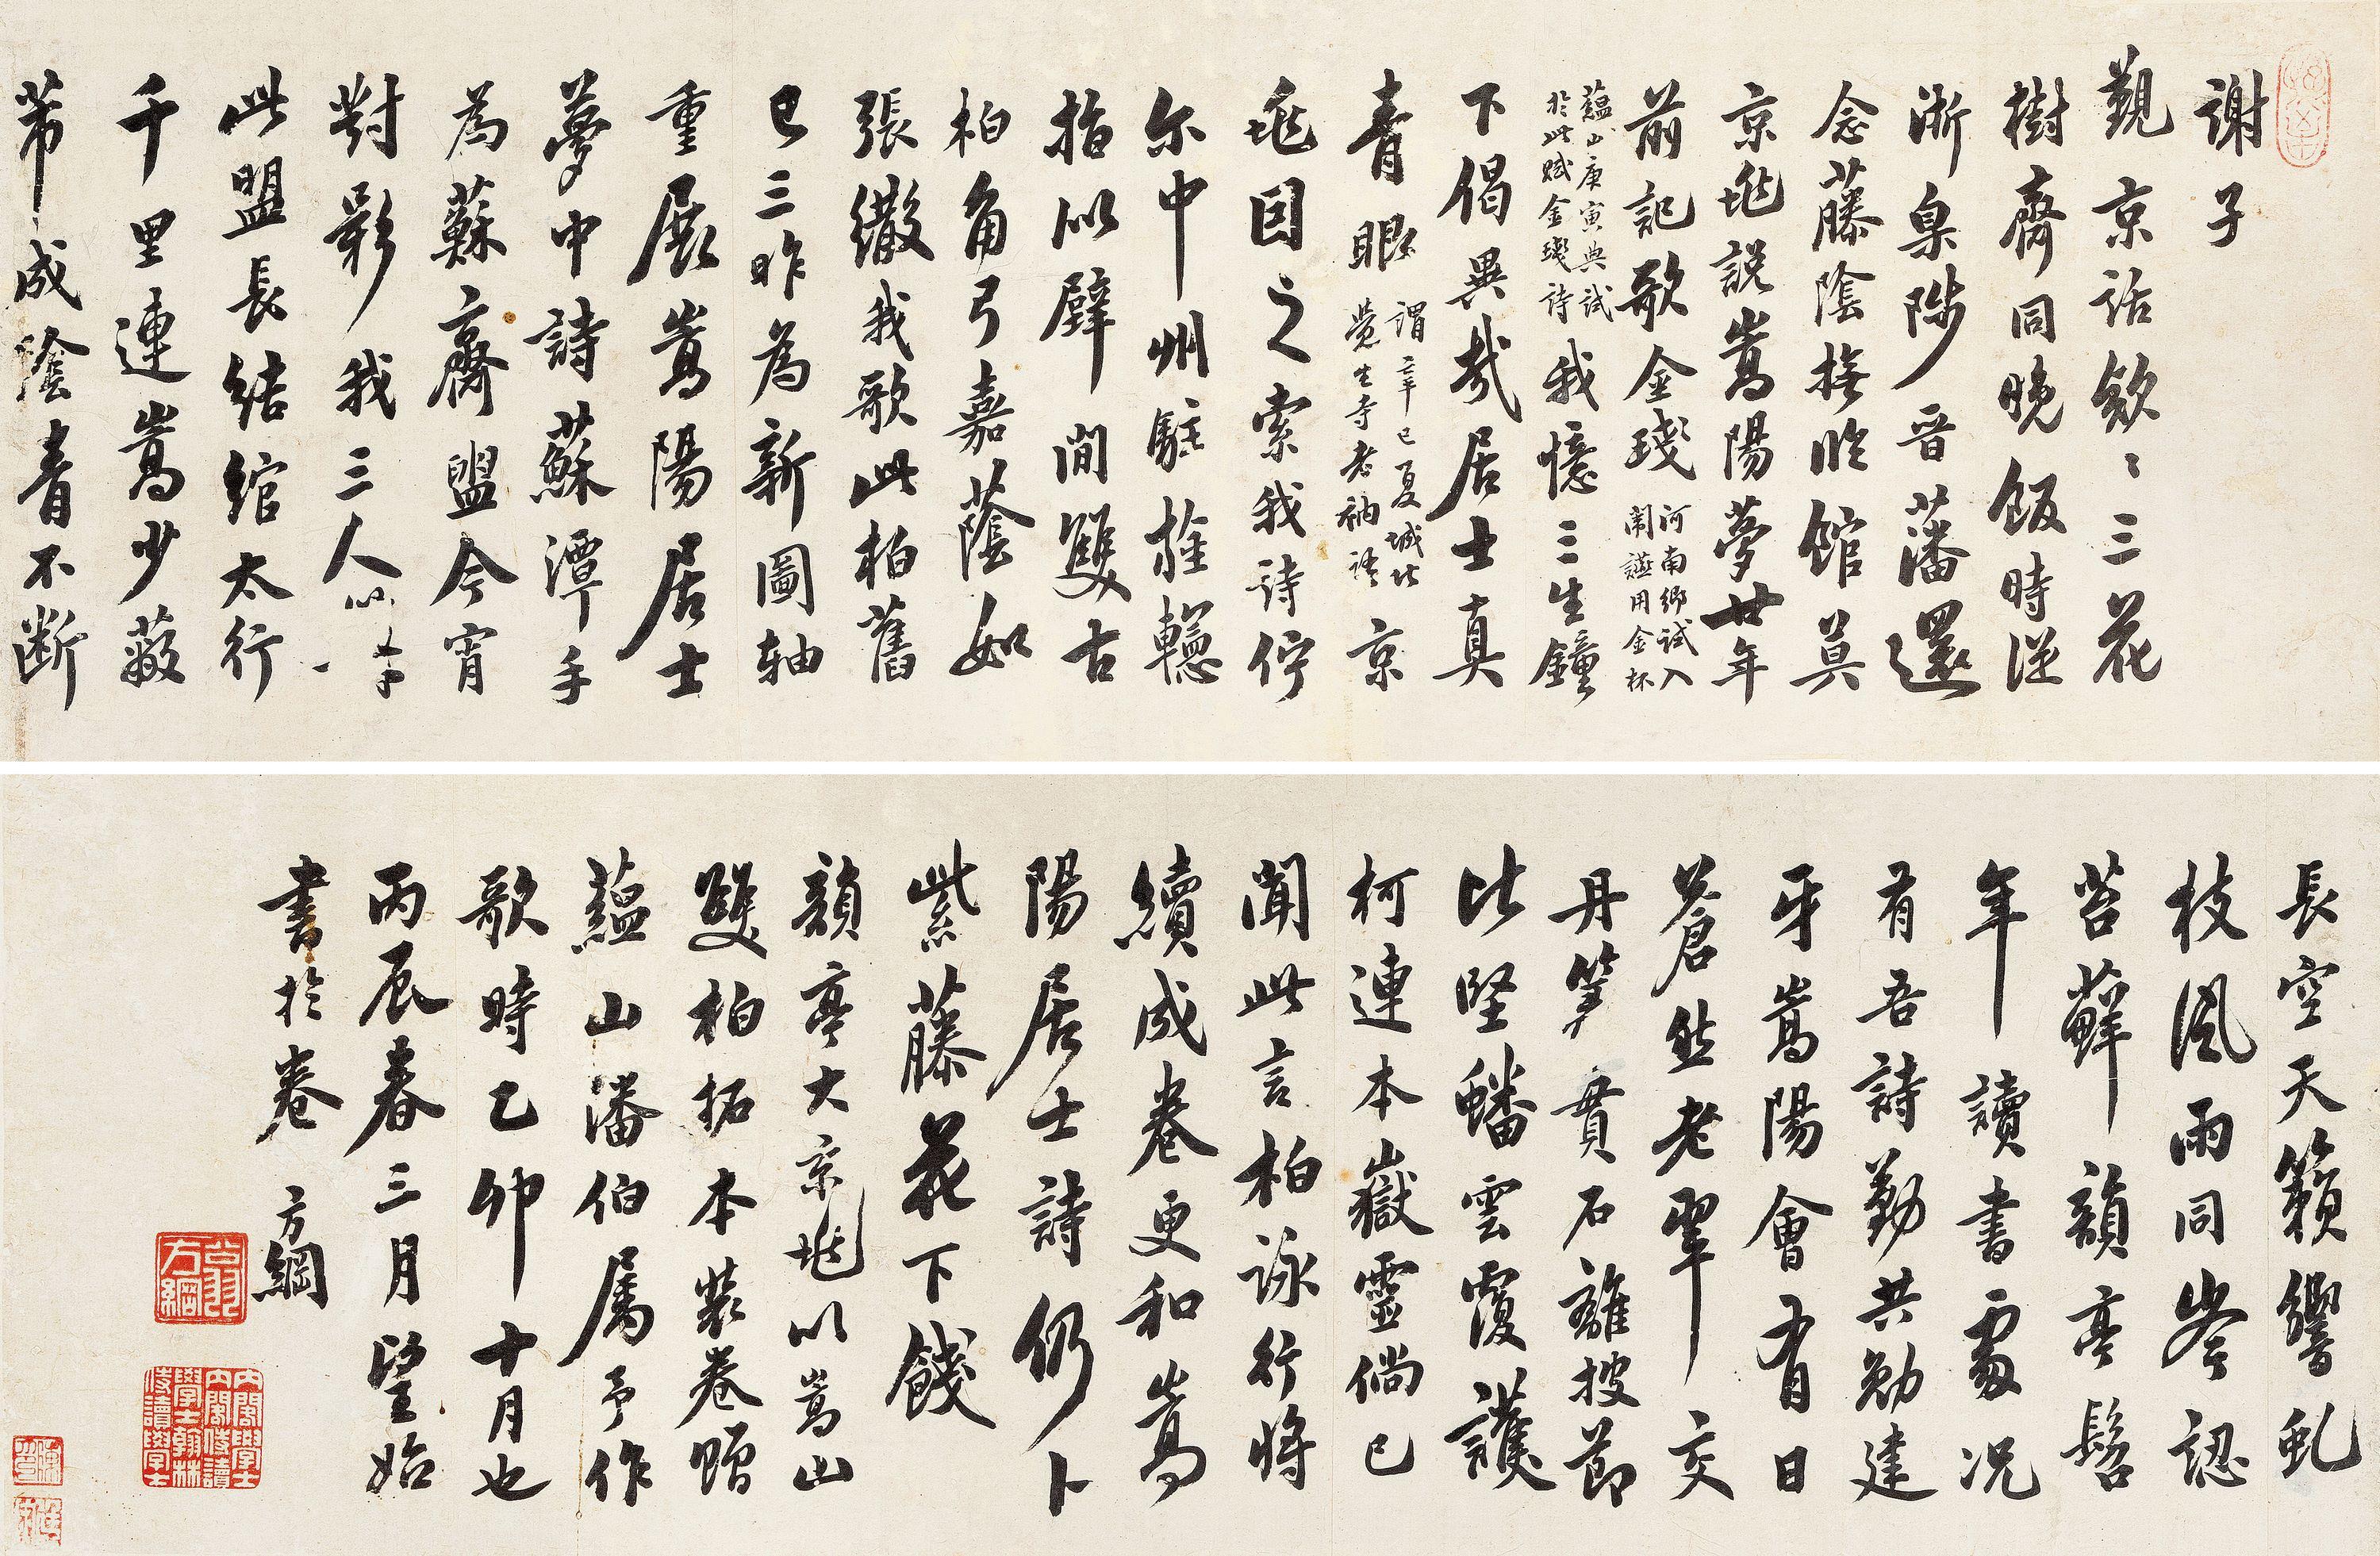 謝子
觀京話欸〻三花
樹齋同晚飯時從
浙臬陟晉藩還
念藤陰接臨館莫
京兆説嵩陽夢廿年
前記歌金琖
河南鄉試入
闈讌用金杯
蘊山庚寅典試
於此賦金琖詩
我憶三生鐘
下偈異哉居士真
青眼
謂辛巳夏城北
覺生寺老衲語
京
兆因之索我詩佇
尔中州駐旌轓
指似壁間雙古
柏角弓嘉蔭如
張繖我歌此柏舊
已三昨為新圖軸
重展嵩陽居士
夢中詩蘇潭手
為蘇齋盟今宵
對影我三人
此盟長結綰太行
千里連嵩少蔽
芾成陰青不斷
長空天籟響虬
枝風雨同岑認
苔蘚韻亭髫
年讀書處况
有吾詩勤共勉建
牙嵩陽會有日
蒼然老翠交
丹筆貫石離披節
比堅蟠雲覆護
柯連本嶽靈倘已
聞此言柏詠行將
續成卷更和嵩
陽居士詩仍卜
紫藤花下餞
韻亭大京兆以嵩山
雙柏拓本裝卷贈
蘊山藩伯屬予作
歌時乙卯十月也
丙辰春三月望始
書於卷 方綱
翁方綱
內閣學士
內閣侍讀
學士翰林
侍讀學士